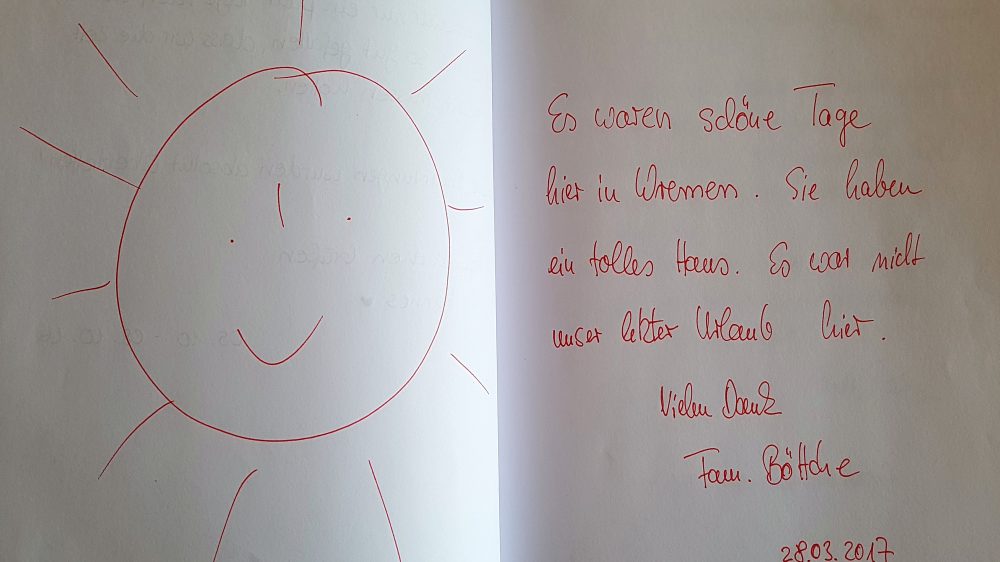 Es waren schöne Tage
hier in Wremen. Sie haben
ein tolles Haus. Es war nicht
unser letzter Urlaub hier.
Vielen Dank
Fam. Böttche
28.03.2017